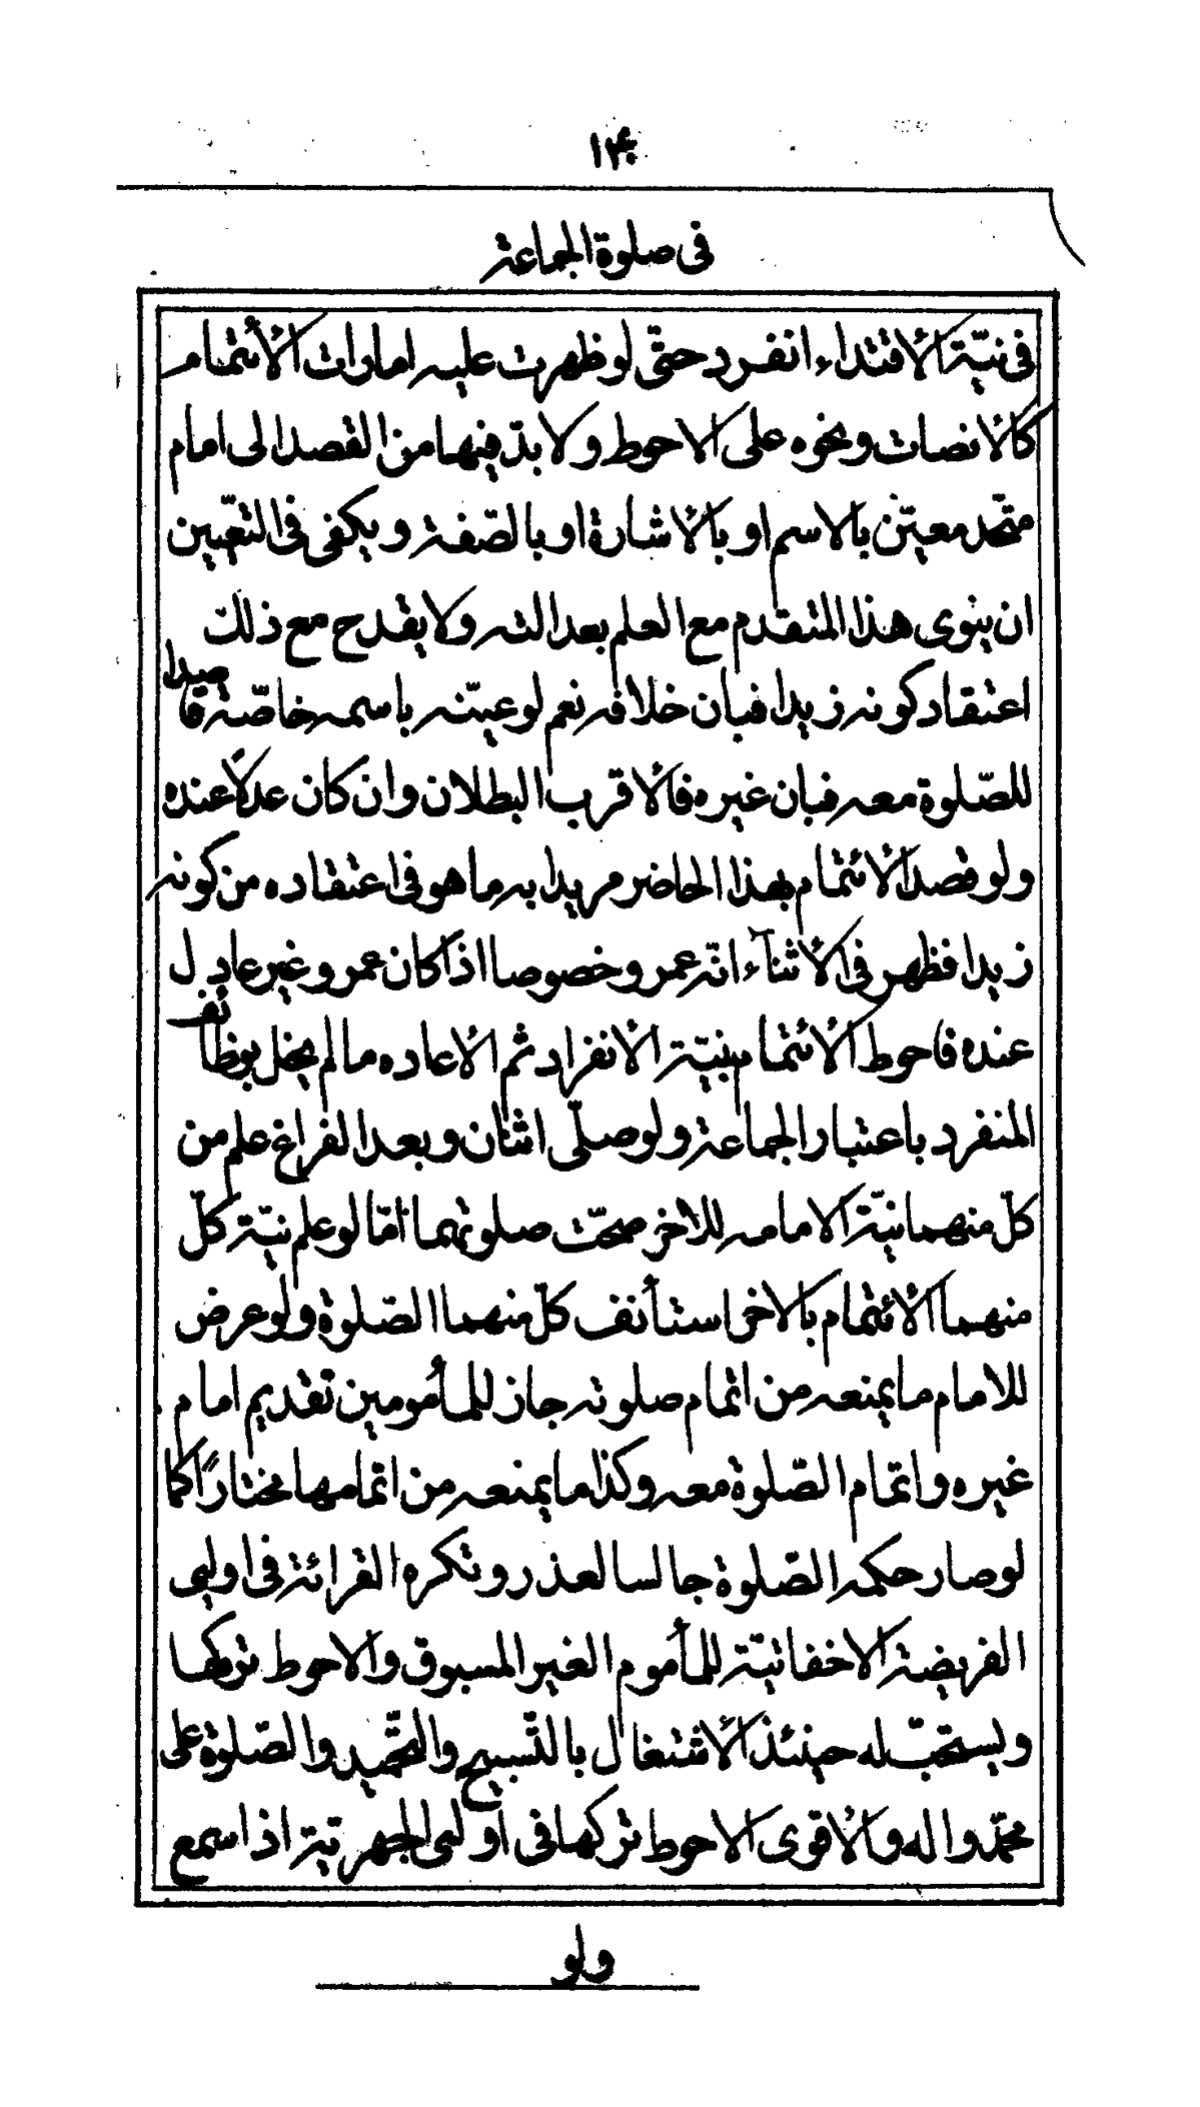 ١٣٠
فى صلوة الجماعة
فى نيّة الأقتداء انفرد حتّى لو ظهرت عليه امارات الأئتمام
كالانصات ونحوه على الاحوط ولا بدّ فيها من القصد الى امام
متّحد معيّن بالاسم او بالأشارة او بالصّفة ويكفى فى التّعيين
ان ينوى هذا المتقدم مع العلم بعدالته ولا يقدح مع ذلك
اعتقاد كونه زيدا فبان خلافه نعم لو عيّنه باسمه خاصّة قاصدا
للصّلوة معه فبان غيره فالأقرب البطلان وان كان عدلاً عنده
ولو قصد الأئتمام بهذا الحاضر مريدا به ما هو فى اعتقاده من كونه
زيدا فظهر فى الأثنآء انّه عمرو خصوصا اذا كان عمرو غير عادل
عنده فاحوط الأئتمام بنيّة الأنفراد ثم الأعاده ما لم يخل بوظائف
المنفرد باعتبار الجماعة ولو صلّى اثنان وبعد الفراغ علم من
كلّ منهما نيّة الامامه للاخر صحّت صلوتهما امّا لو علم نيّة كلّ
منهما الأئتمام بالاخر استأنف كلّ منهما الصّلوة ولو عرض
للامام ما يمنعه من اتمام صلوته جاز للمأمومين تقديم امام
غيره واتمام الصّلوة معه وكذا ما يمنعه من اتمامها مختاراً كما
لو صار حكمه الصّلوة جالسا لعذر وتكره القرائة فى اوليى
الفريضة الاخفاتيّة للمأموم الغير المسبوق والاحوط تركها
ويستحبّ له حينئذ الأشتغال بالتّسبيح والتّحميد والصّلوة على
محمّد واله والأقوى الاحوط تركها فى اوليى الجهريّة اذا سمع
ولو